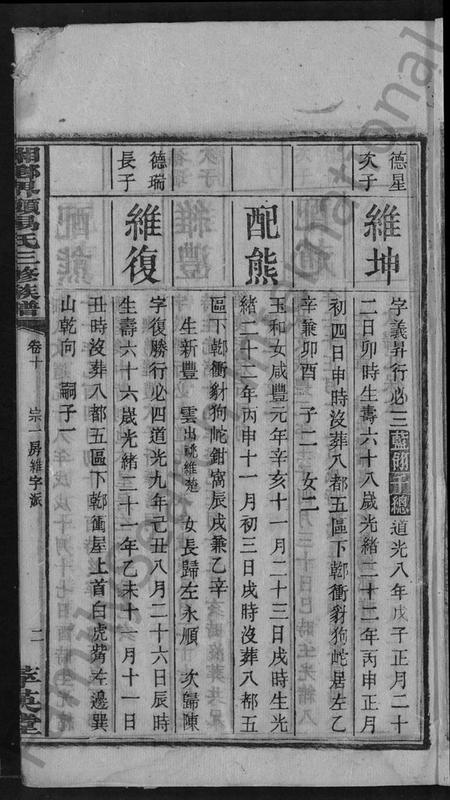 德星
次子
維坤
字義昇行必三藍翎千總道光八年戊子正月二十
二日卯時生壽六十八歲光緒二十二年丙申正月
初四日申時沒葬八都五區下鄣衝豺狗岮居左乙
辛兼卯酉 子二 女二
配熊
玉和女咸豐元年辛亥十一月二十三日戌時生光
緒二十二年丙申十一月初三日戌時沒葬八都五
區下鄣衝豺狗岮鉗窩辰戌兼乙辛
生新豐 雲出祧維楚 女長歸左永順 次歸陳
德瑞
長子
維復
字復勝行必四道光九年己丑八月二十六日辰時
生壽六十六歲光緒二十一年乙未十六月十一日
丑時沒葬八都五區下鄣衝屋上首白虎嘴左邊巽
山乾向 嗣子一
湘鄉 氏三修族譜
卷十
宗一房維字派
二
萃英堂